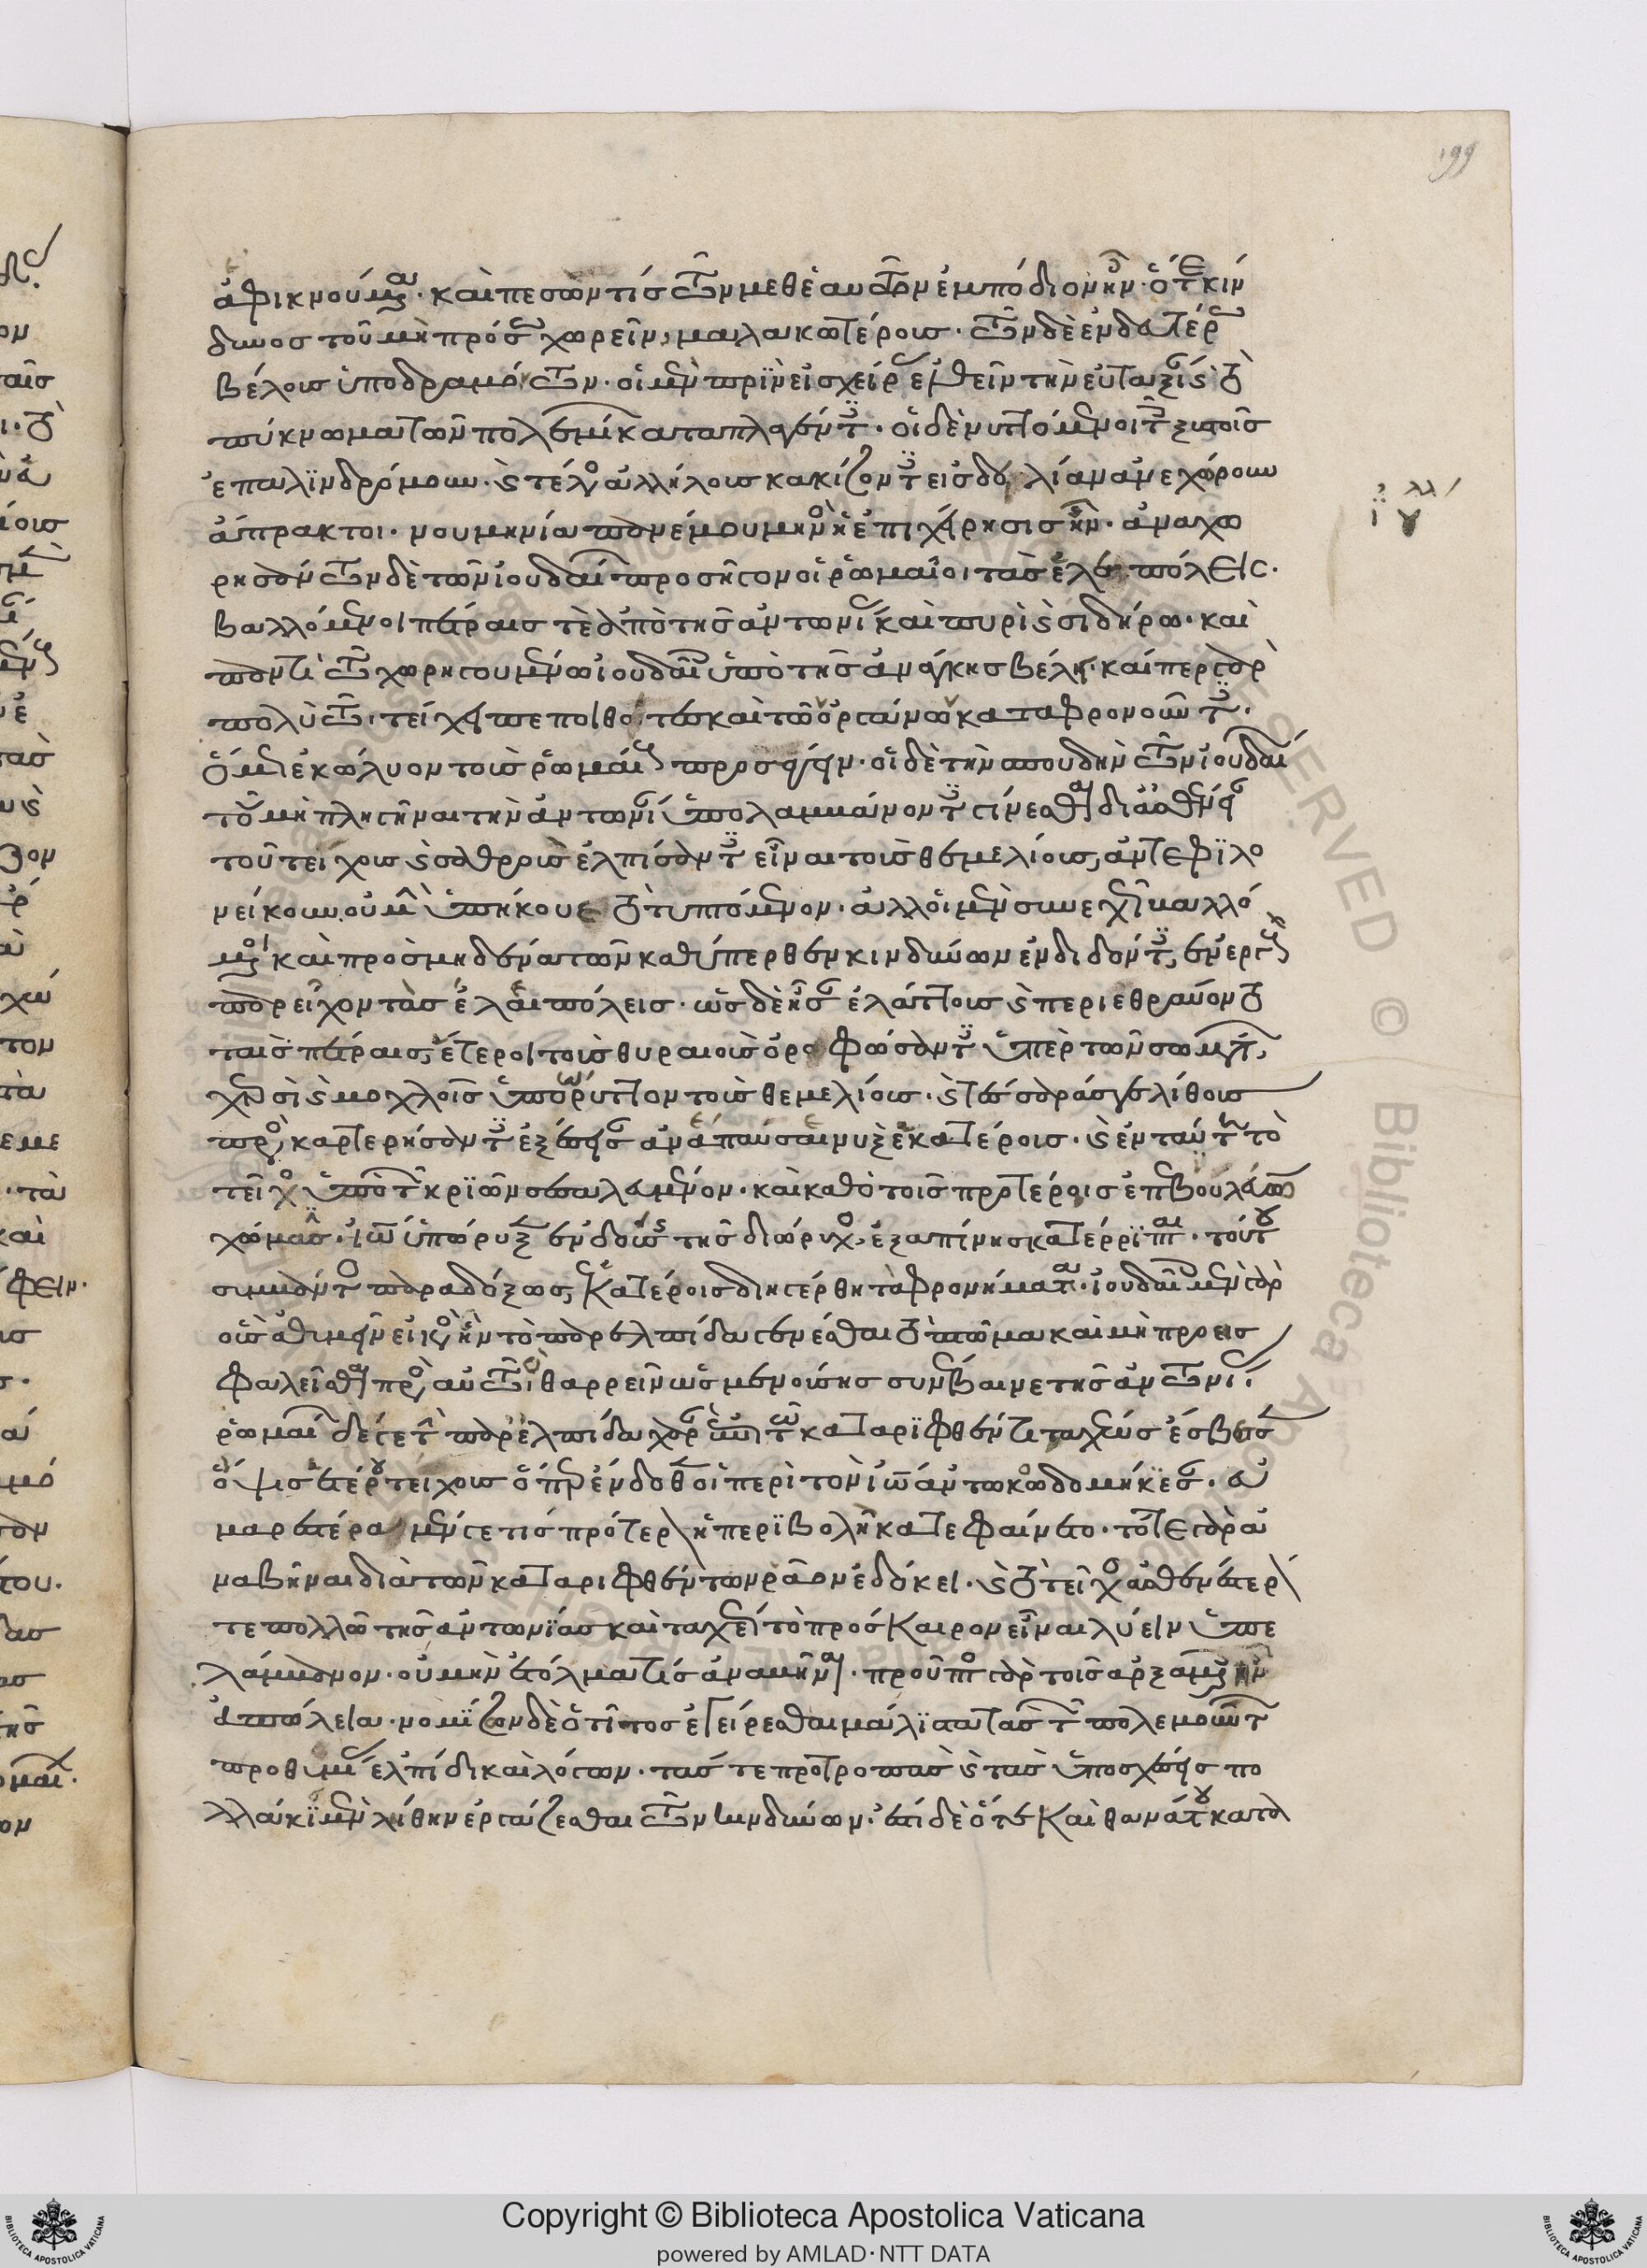 ἀφικνούμεναι· καὶ πεσών τις τῶν μεθ' ἑαυτὸν ἐμπόδιον ἦν· ὅτε κίν
δυνος τοῦ μὴ πρόσω χωρεῖν, μαλακωτέρους· τῶν δὲ ἐνδοτέρω
βέλους ὑποδραμόντων· οἱ μὲν πρὶν εἰς χεῖρας ἐλθεῖν τὴν εὐταξίαν καὶ τὸ
πύκνωμα τῶν πολεμίων καταπλαγέντες· οἱ δὲ νυττόμενοι τοῖς ξυστοῖς
ἐπαλινδρόμουν· καὶ τέλος ἀλλήλους κακίζοντες εἰς δειλίαν ἀνεχώρουν
ἄπρακτοι· νουμηνία πανέμου μηνὸς ἡ ἐπιχείρησις ἦν· ἀναχω
ρησάντων δὲ τῶν ἰουδαίων προσῆγον οἱ ῥωμαῖοι τὰς ἑλεπόλεις·
βαλλόμενοι πέτραις τὲ ἀπὸ τῆς ἀντωνίας καὶ πυρὶ καὶ σιδήρω· καὶ
παντὶ τῶ χωρηγουμένω ἰουδαίοις ὑπὸ τῆς ἀνάγκης βέλει· καίπερ γὰρ
πολὺ τῶ τείχει πεποιθότες καὶ τῶν ὀργάνων καταφρονοῦντες·
ὅμως ἐκώλυον τοὺς ῥωμαίους προσάγειν· οἱ δὲ τὴν σπουδὴν τῶν ἰουδαίων
τοῦ μὴ πληγῆναι τὴν ἀντωνίαν ὑπολαμβάνοντες γίνεσθαι δι' ἀσθένειαν
τοῦ τείχους καὶ σαθροὺς ἐλπίσαντες εἶναι τοὺς θεμελίους, ἀντεφιλο
νείκουν. οὐ μὴν ὑπήκουε τὸ τυπτόμενον· ἀλλ' οἱ μὲν συνεχῶς βαλλό
μενοι καὶ πρὸς μηδένα τῶν καθύπερθεν κινδύνων ἐνδιδόντες, ἐνεργοὺς
παρεῖχον τὰς ἑλεπόλεις· ὡς δὲ ἦσαν ἐλάττους καὶ περιεθραύοντο
ταῖς πέτραις, ἕτεροι τοὺς θυραιοὺς ὀροφώσαντες ὑπὲρ τῶν σωμάτων,
χερσὶ καὶ μοχλοῖς ὑπώρυττον τοὺς θεμελίους· καὶ τέσσαράς γε λίθους
προσκαρτερήσαντες ἐξέσεισαν ἀνέπαυσε νὺξ ἑκατέρους· καὶ ἐν ταύτη τὸ
τεῖχος ὑπὸ τῶν κριῶν σεσαλευμένον· καὶ καθὸ τοῖς προτέροις ἐπιβουλεύων
χώμασιν· ἰωάννης ὑπώρυξεν ἐνδούσης τῆς διώρυχος, ἐξαπίνης κατερρίπεται· τούτου
συμβάντος παραδόξως, ἑκατέροις διηγέρθη τὰ φρονήματα· ἰουδαίους μὲν γὰρ
οὓς ἀθυμεῖν εἰκὸς ἦν τὸ παρ' ἐλπίδα γενέσθαι τὸ πτῶμα καὶ μὴ προεισ
φαλεῖσθαι πρὸς αὐτὸ θαρρεῖν ὡς μενούσης συνέβαινε τῆς ἀντωνίας·
ῥωμαίων δέ γε τὴν παρ' ἐλπίδα χαρὰν ἐπὶ τῶ καταριφθέντι ταχέως ἔσβεσεν
ὄψις ἑτέρου τείχους ὅπερ ἔνδοθεν οἱ περὶ τὸν ἰωάννην ἀντωκοδομήκεσαν· εὐ
μαρεστέρα μέν γε τῆς πρότερον ἡ περιβολὴ κατεφαίνετο· τότε γὰρ ἀ
ναβῆναι διὰ τῶν καταριφθέντων ρᾶον ἐδόκει· καὶ τὸ τεῖχος ἀσθενέστερον
τε πολλῶ τῆς ἀντωνίας καὶ ταχέως τὸ πρόσκαιρον εἶναι λύειν ὑπε
λάμβανον· οὐ μὴν ἐτόλμα τίς ἀναβῆναι· προῦπτος γὰρ τοῖς ἀρξαμένοις ἦν
ἀπώλεια· νομίζων δὲ ὁ τίτος ἐγείρεσθαι μάλιστα τὰς τῶν πολεμούντων
προθυμίας ἐλπίδι καὶ λόγων· τάς τε προτροπὰς καὶ τὰς ὑποσχέσεις πο
λλάκις μὲν λήθην ἐργάζεσθαι τῶν κινδύνων· ἔστι δὲ ὅτε καὶ θανάτου κατα